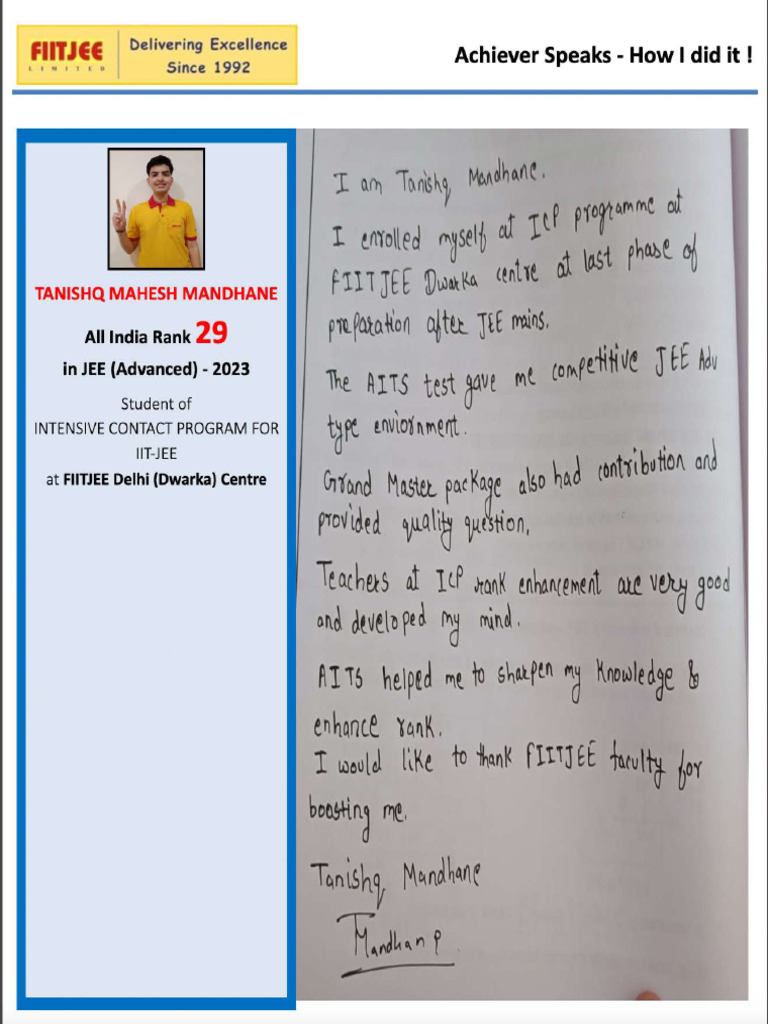 FIITJEE
LIMITED
Delivering Excellence
Since 1992
Achiever Speaks - How I did it !
TANISHQ MAHESH MANDHANE
All India Rank 29
in JEE (Advanced) - 2023
Student of
INTENSIVE CONTACT PROGRAM FOR
IIT-JEE
at FIITJEE Delhi (Dwarka) Centre
I am Tanishq Mandhane.
I enrolled myself at ICP programme at
FIITJEE Dwarka centre at last phase of
preparation after JEE mains.
The AITS test gave me competitive JEE Adv
type enviornment.
Grand Master package also had contribution and
provided quality question.
Teachers at ICP rank enhancement are very good
and developed my mind.
AITS helped me to sharpen my knowledge &
enhance rank.
I would like to thank FIITJEE faculty for
boosting me.
Tanishq Mandhane
TMandhane